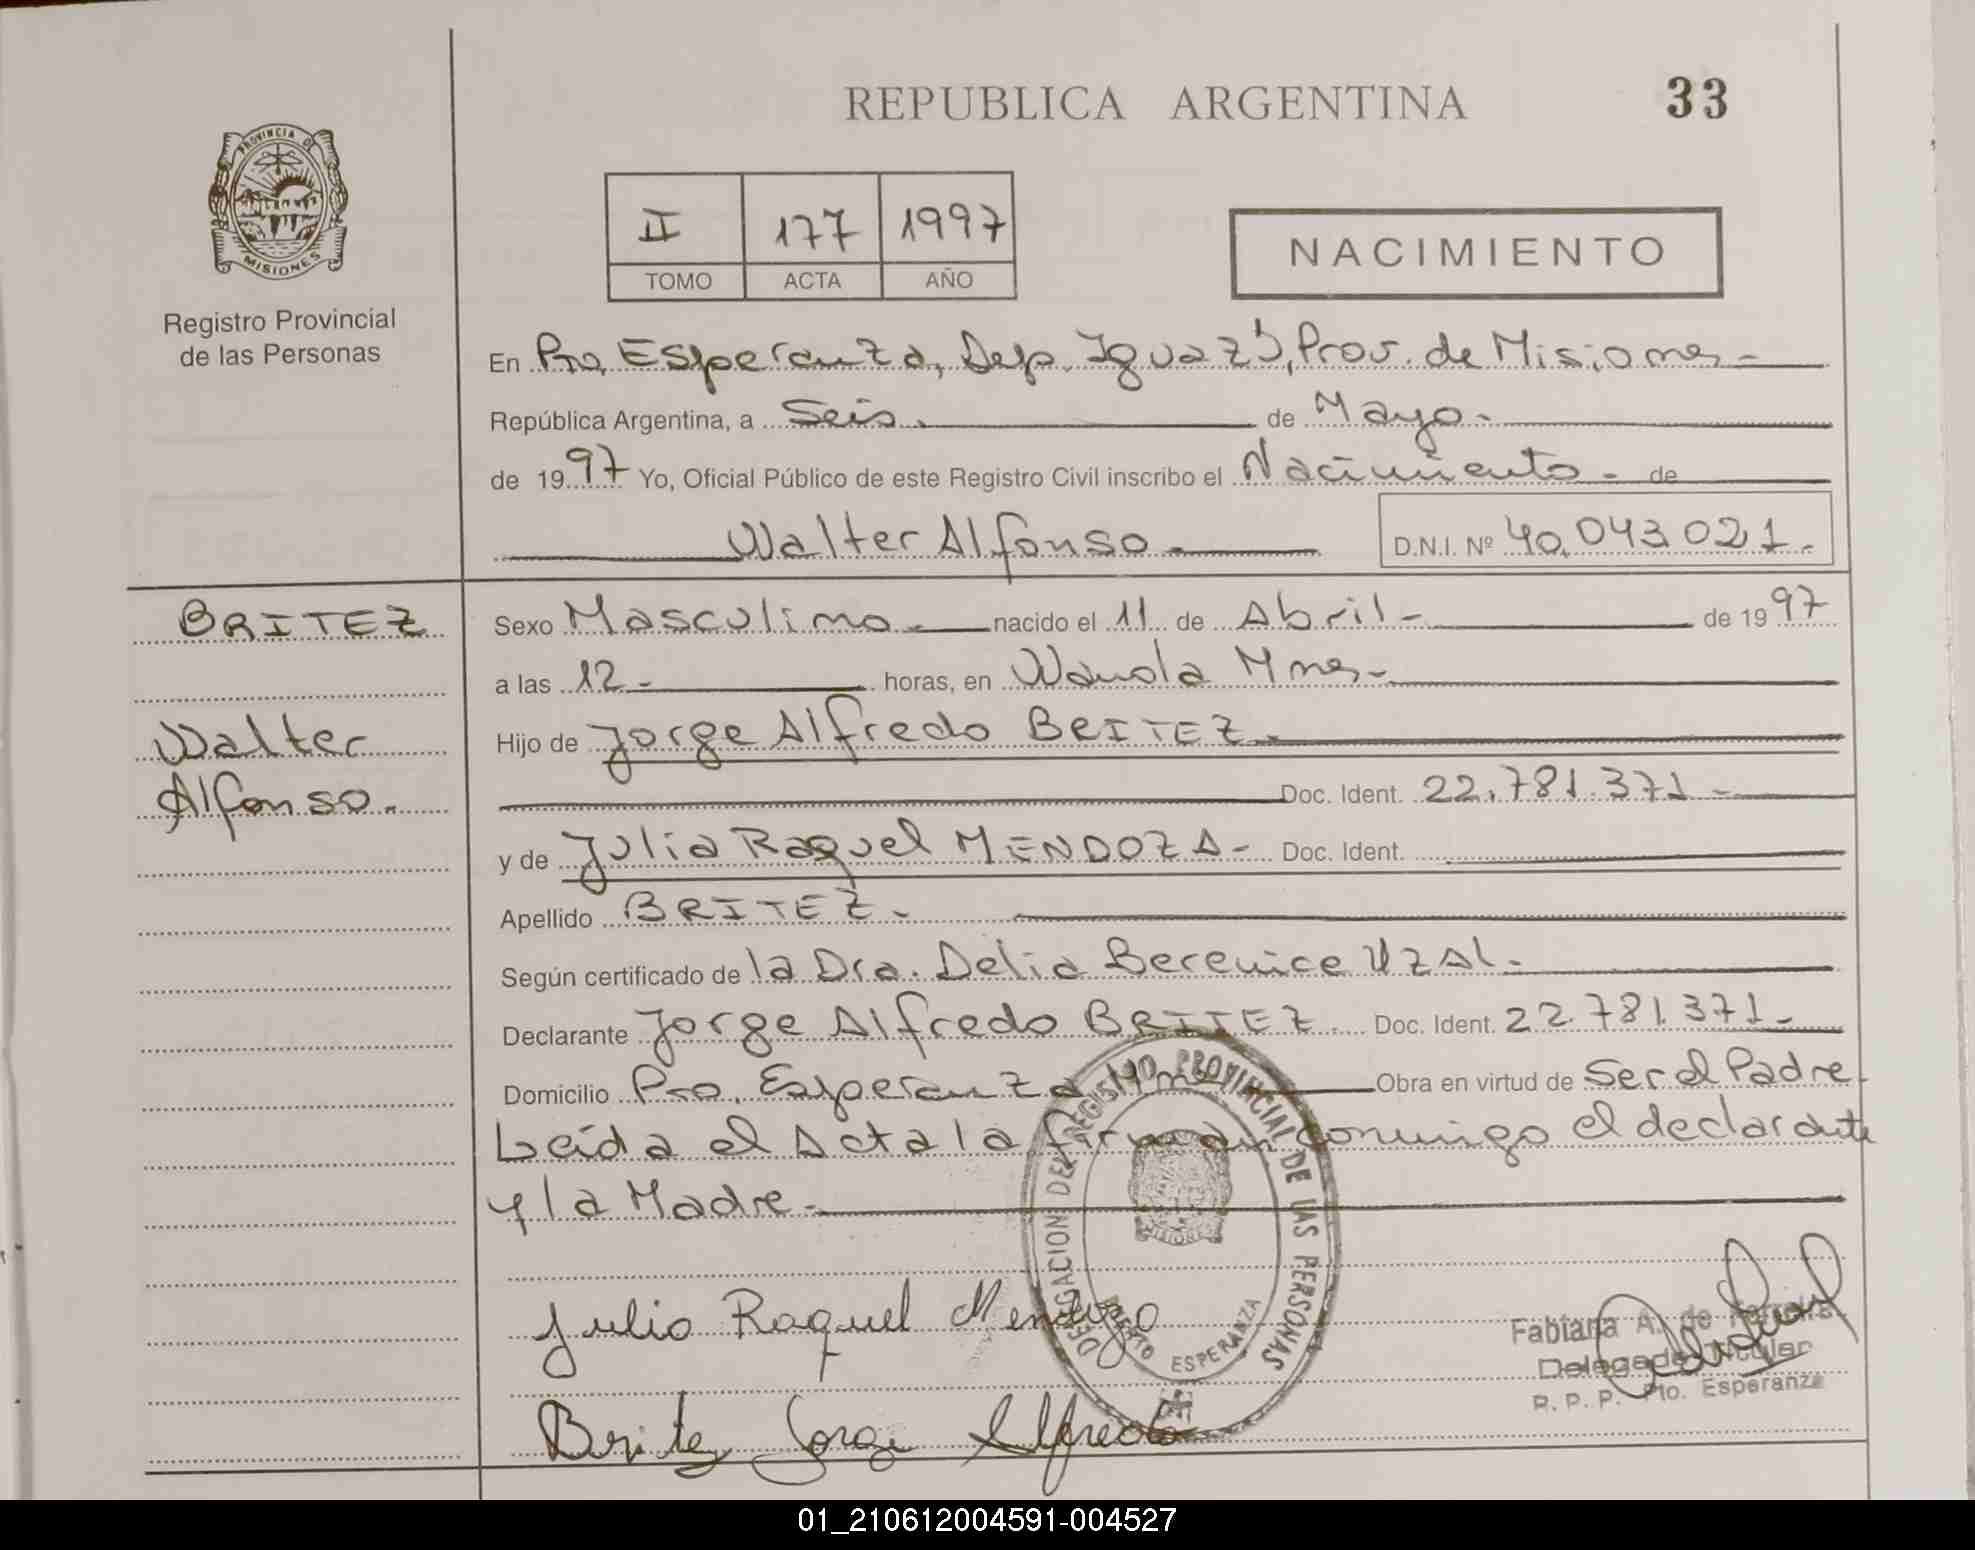 REPUBLICA ARGENTINA
33
PROVINCIA DE
MISIONES
Registro Provincial
de las Personas
II 177 1997
TOMO ACTA AÑO
NACIMIENTO
En Pto. Esperanza, Dep. Iguazú, Prov. de Misiones -
República Argentina, a Seis. de Mayo.
de 1997 Yo, Oficial Público de este Registro Civil inscribo el Nacimiento - de
Walter Alfonso - D.N.I. Nº 40.043021.
BRITEZ
Walter
Alfonso.
Sexo Masculino - nacido el 11 de Abril - de 1997
a las 12 - horas, en Wanda Mnes -
Hijo de Jorge Alfredo BRITEZ -
Doc. Ident. 22.781.371 -
y de Julia Raquel MENDOZA - Doc. Ident.
Apellido BRITEZ.
Según certificado de la Dra. Delia Berenice UZAL.
Declarante Jorge Alfredo BRITEZ Doc. Ident. 22.781.371 -
Domicilio Pto. Esperanza Mnes Obra en virtud de Ser el Padre
Leida el Acta la firman conmigo el declarante
y la Madre -
DELEGACION DEL REGISTRO PROVINCIAL DE LAS PERSONAS
PUERTO ESPERANZA
MISIONES
Julia Raquel Mendoza
Britez Jorge Alfredo
Fabiana A. de Ferreira
Delegada Titular
R. P. P. Pto. Esperanza
01_210612004591-004527